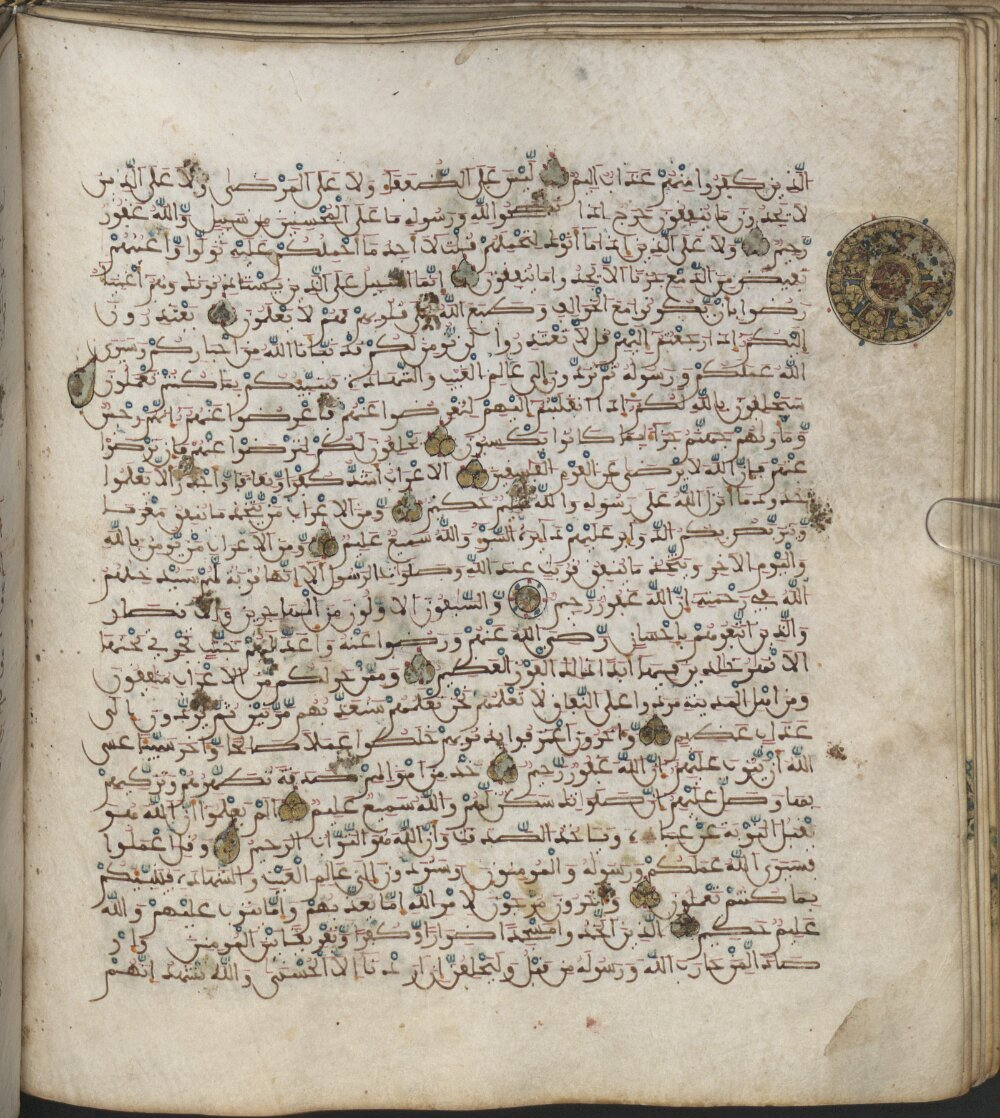 الذين كفروا منهم عذاب اليم ليس على الضعفاء ولا على المرضى ولا على الذين
لا يجدون ما ينفقون حرج اذا نصحوا لله ورسوله ما على المحسنين من سبيل والله غفور
رحيم ولا على الذين اذا ما اتوك لتحملهم قلت لا اجد ما احملكم عليه تولوا واعينهم
تفيض من الدمع حزنا الا يجدوا ما ينفقون انما السبيل على الذين يستاذنونك وهم اغنياء
رضوا بان يكونوا مع الخوالف وطبع الله على قلوبهم فهم لا يعلمون يعتذرون
اليكم اذا رجعتم اليهم قل لا تعتذروا لن نومن لكم قد نبانا الله من اخباركم وسيرى
الله عملكم ورسوله ثم تردون الى علم الغيب والشهادة فينبئكم بما كنتم تعملون
سيحلفون بالله لكم اذا انقلبتم اليهم لتعرضوا عنهم فاعرضوا عنهم انهم رجس
وماويهم جهنم جزاء بما كانوا يكسبون يحلفون لكم لترضوا عنهم فان ترضوا
عنهم فان الله لا يرضى عن القوم الفسقين الاعراب اشد كفرا ونفاقا واجدر الا يعلموا
حدود ما انزل الله على رسوله والله عليم حكيم ومن الاعراب من يتخذ ما ينفق مغرما
ويتربص بكم الدواير عليهم دايرة السوء والله سميع عليم ومن الاعراب من يومن بالله
واليوم الاخر ويتخذ ما ينفق قربت عند الله وصلوات الرسول الا انها قربة لهم سيدخلهم
الله في رحمته ان الله غفور رحيم والسبقون الاولون من المهجرين والانصار
والذين اتبعوهم باحسن رضي الله عنهم ورضوا عنه واعد لهم جنت تجري تحتها
الانهر خلدين فيها ابدا ذلك الفوز العظيم وممن حولكم من الاعراب منفقون
ومن اهل المدينة مردوا على النفاق لا تعلمهم نحن نعلمهم سنعذبهم مرتين ثم يردون الى
عذاب عظيم واخرون اعترفوا بذنوبهم خلطوا عملا صلحا واخر سيئا عسى
الله ان يتوب عليهم ان الله غفور رحيم خذ من امولهم صدقة تطهرهم وتزكيهم
بها وصل عليهم ان صلواتك سكن لهم والله سميع عليم الم يعلموا ان الله هو
يقبل التوبة عن عباده وياخذ الصدقت وان الله هو التواب الرحيم وقل اعملوا
فسيرى الله عملكم ورسوله والمومنون وستردون الى علم الغيب والشهادة فينبئكم
بما كنتم تعملون واخرون مرجون لامر الله اما يعذبهم واما يتوب عليهم والله
عليم حكيم الذين اتخذوا مسجدا ضرارا وكفرا وتفريقا بين المومنين وار
صادا لمن حارب الله ورسوله من قبل وليحلفن ان اردنا الا الحسنى والله يشهد انهم